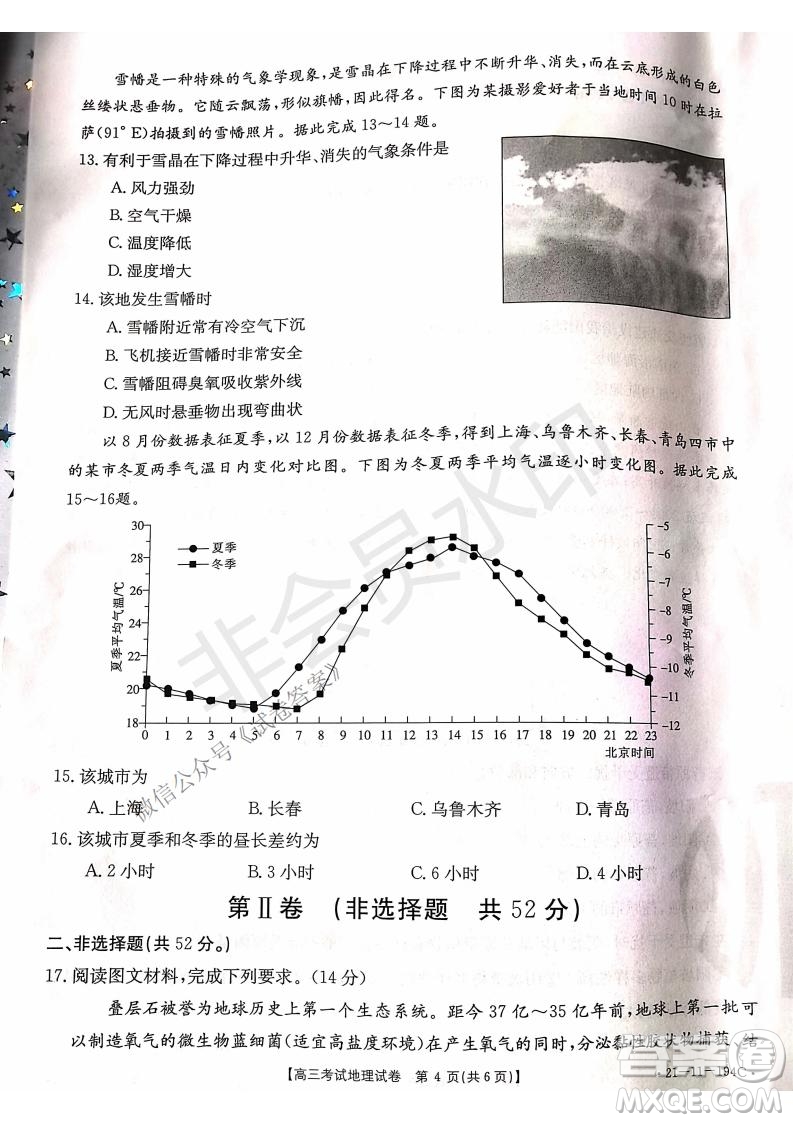 雪幡是一种特殊的气象学现象,是雪晶在下降过程中升华、消失,而在云底形成的白色
丝缕状悬垂物。它随云飘荡,形似旗幡,因此得名。下图为某摄影爱好者于当地时间10时在拉
萨(91°E)拍摄到的雪幡照片。据此完成13~14题。
13. 有利于雪晶在下降过程中升华、消失的气象条件是
A. 风力强劲
B. 空气干燥
C. 温度降低
D. 湿度增大
14. 该地发生雪幡时
A. 雪幡附近常有冷空气下沉
B. 飞机接近雪幡时非常安全
C. 雪幡阻碍臭氧吸收紫外线
D. 无风时悬垂物出现弯曲状
以8月份数据表征夏季,以12月份数据表征冬季,得到上海、乌鲁木齐、长春、青岛四市中
的某市冬夏两季气温日内变化对比图。下图为冬夏两季平均气温逐小时变化图。据此完成
15~16题。
夏季平均气温/℃
30
28
26
24
22
20
18
夏季
冬季
-5
-6
-7
-8
-9
-10
-11
-12
冬季平均气温/℃
0 1 2 3 4 5 6 7 8 9 10 11 12 13 14 15 16 17 18 19 20 21 22 23
北京时间
非会员水印
微信公众号《试卷答案》
15. 该城市为
A. 上海 B. 长春 C. 乌鲁木齐 D. 青岛
16. 该城市夏季和冬季的昼长差约为
A. 2小时 B. 3小时 C. 6小时 D. 4小时
第Ⅱ卷 (非选择题 共52分)
二、非选择题(共52分。)
17. 阅读图文材料,完成下列要求。(14分)
叠层石被誉为地球历史上第一个生态系统。距今37亿~35亿年前,地球上第一批可
以制造氧气的微生物蓝细菌(适宜高盐度环境)在产生氧气的同时,分泌黏性胶状物捕获、结
【高三考试地理试卷 第4页(共6页)】
·21-11-194C·
答案圈
MXQE.COM